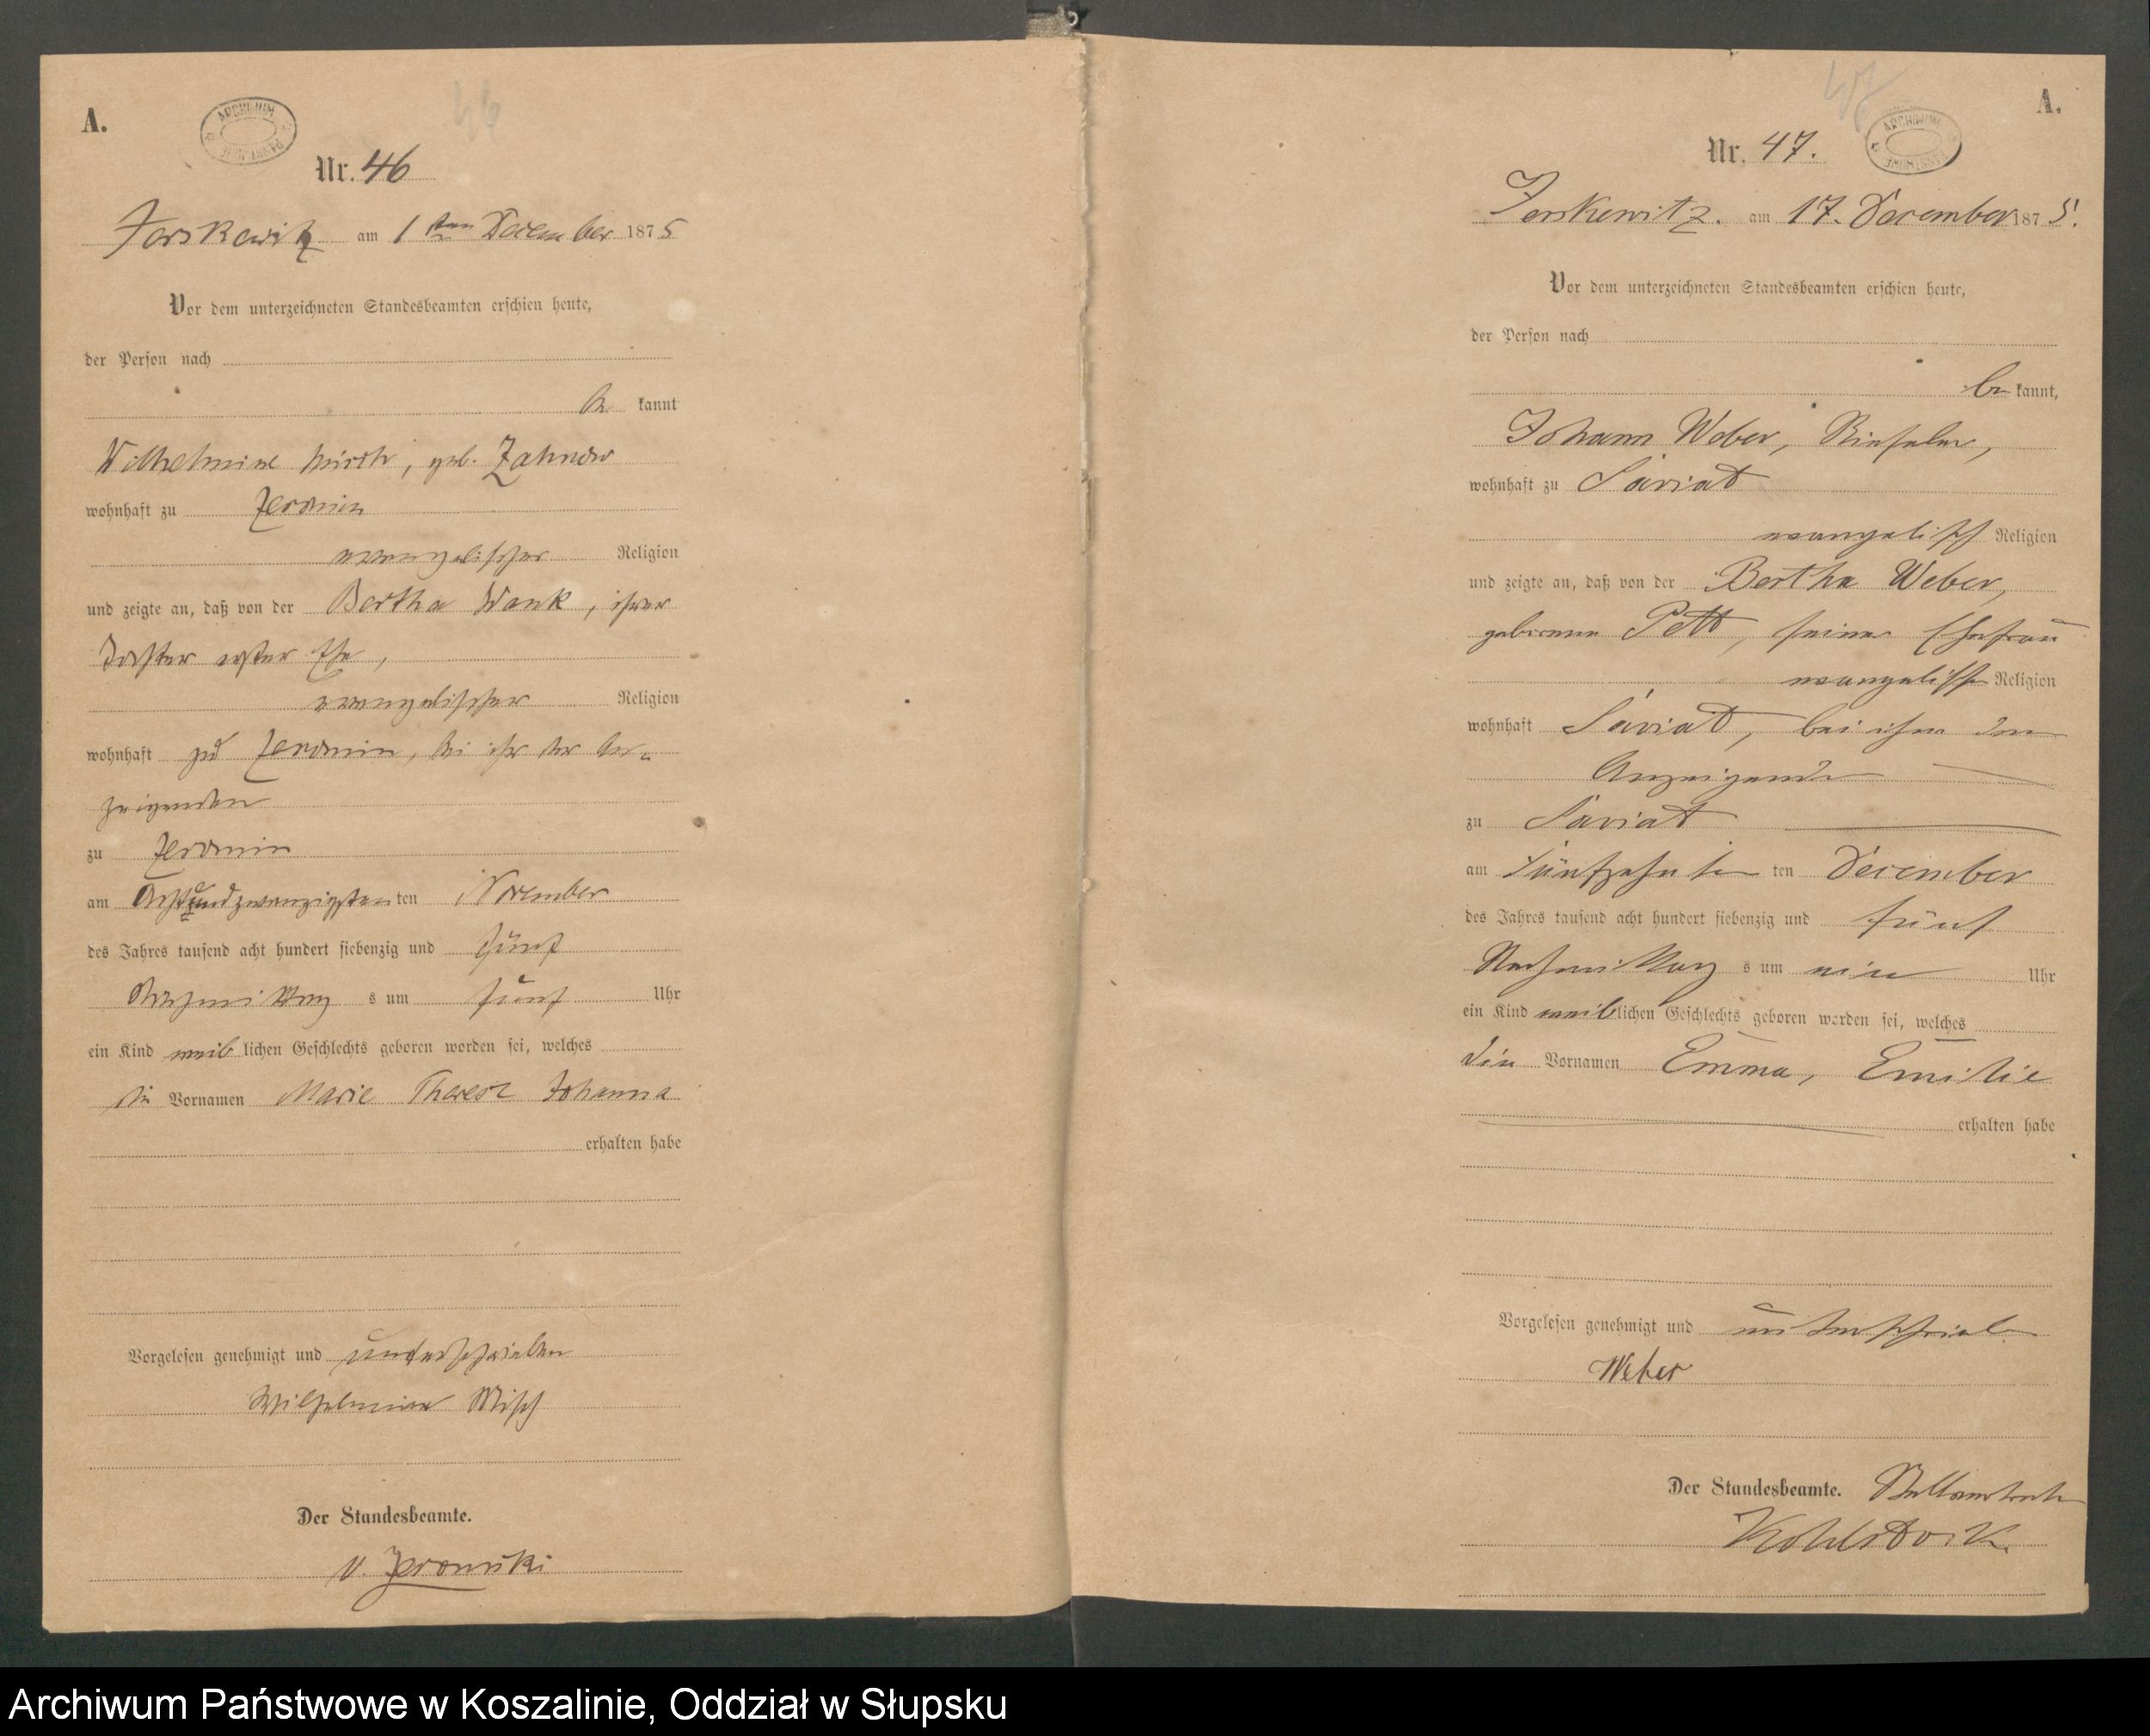 A.
ARCHIWUM PAŃSTWOWE
46
Nr. 46
Jerskewitz am 1ten December 1875
Vor dem unterzeichneten Standesbeamten erschien heute,
der Person nach
be kannt
Wilhelmine geb. Zahnow
wohnhaft zu Jeromin
evangelischer Religion
und zeigte an, daß von der Bertha Wonk, ihrer
Tochter erster Ehe,
evangelischer Religion
wohnhaft zu Jeromin, bei ihr der An-
zeigenden
zu Jeromin
am Achtundzwanzigsten ten November
des Jahres tausend acht hundert siebenzig und fünf
Nachmittag s um fünf Uhr
ein Kind weib lichen Geschlechts geboren worden sei, welches
die Vornamen Marie Therese Johanna
erhalten habe
Vorgelesen genehmigt und unterschrieben
Wilhelmine Misch
Der Standesbeamte.
v. Jerominski
A.
47
ARCHIWUM PAŃSTWOWE
Nr. 47.
Jerskewitz. am 17. December 1875.
Vor dem unterzeichneten Standesbeamten erschien heute,
der Person nach
be kannt,
Johann Weber,
wohnhaft zu Saviat
evangelisch Religion
und zeigte an, daß von der Bertha Weber,
geborene Pett, seiner Ehefrau
evangelisch Religion
wohnhaft Saviat, bei ihm dem
Anzeigenden
zu Saviat
am fünfzehnten ten December
des Jahres tausend acht hundert siebenzig und fünf
Nachmittag s um ein Uhr
ein Kind weib lichen Geschlechts geboren worden sei, welches
die Vornamen Emma, Emilie
erhalten habe
Vorgelesen genehmigt und unterschrieben
Weber
Der Standesbeamte.
Archiwum Państwowe w Koszalinie, Oddział w Słupsku